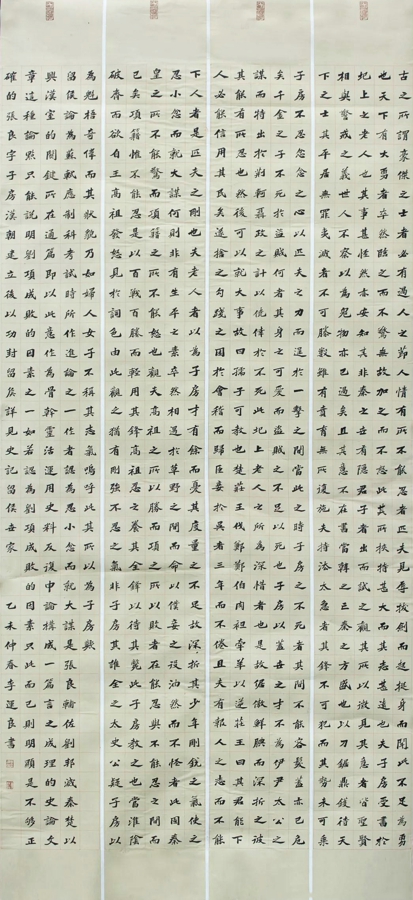 古之所謂豪傑之士者必有過人之節人情有所不能忍者匹夫見辱拔劍而起挺身而鬥此不足為勇
也天下有大勇者卒然臨之而不驚無故加之而不怒此其所挾持者甚大而其志甚遠也夫子房受書於
圯上之老人也其事甚怪然亦安知其非秦之世有隱君子者出而試之觀其所以微見其意者皆聖賢
相與警戒之義而世人不察以為鬼物亦已過矣且其意不在書當韓之亡秦之方盛也以刀鋸鼎鑊待天
下之士其平居無罪夷滅者不可勝數雖有賁育無所復施夫持法太急者其鋒不可犯而其勢未可乘
子房不忍忿忿之心以匹夫之力而逞於一擊之間當此之時子房之不死者其間不能容髮蓋亦已危
矣千金之子不死於盜賊何者其身之可愛而盜賊之不足以死也子房以蓋世之才不為伊尹太公之
謀而特出於荊軻聶政之計以僥倖於不死此圯上老人之所為深惜者也是故倨傲鮮腆而深折之彼
其能有所忍也然後可以就大事故曰孺子可教也楚莊王伐鄭鄭伯肉袒牽羊以逆莊王曰其君能下
人必能信用其民矣遂捨之勾踐之困於會稽而歸臣妾於吳者三年而不倦且夫有報人之志而不能
下人者是匹夫之剛也夫老人者以為子房才有餘而憂其度量之不足故深折其少年剛銳之氣使之
忍小忿而就大謀何則非有生平之素卒然相遇於草野之間而命以僕妾之役油然而不怪者此固秦
皇之所不能驚而項籍之所不能怒也觀夫高祖之所以勝而項籍之所以敗者在能忍與不能忍之間而
已矣項籍惟不能忍是以百戰百勝而輕用其鋒高祖忍之養其全鋒以待其斃此子房教之也當淮陰
破齊而欲自王高祖發怒見於詞色由此觀之猶有剛強不忍之氣非子房其誰全之太史公疑子房以
為魁梧奇偉而其狀貌乃如婦人女子不稱其志氣嗚呼此其所以為子房歟
留侯論為蘇軾應制科考試時所作進論之一作者認為忍小忿而就大謀是張良輔佐劉邦滅秦楚以
興漢室的關鍵通篇以此意作為骨幹靈活運用史料反復申論構成一篇言之成理的史論文
章這種論點只能說明劉項成敗的因素之一若認為劉項成敗的因素只此而已則明顯是不够正
確的張良字子房漢朝建立後以功封留侯詳見史記留侯世家 乙未仲春李運良書